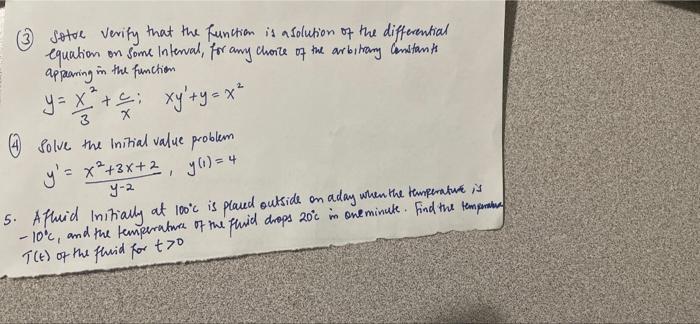 ③ Solve Verify that the function is a solution of the differential
equation on some Interval, for any choice of the arbitrary Constants
appearing in the function
y = x²/3 + c/x ; xy' + y = x²
④ Solve the Initial value problem
y' = (x²+3x+2)/(y-2) , y(1) = 4
5. A fluid Initially at 100°c is placed outside on a day when the temperature is
-10°c, and the temperature of the fluid drops 20°c in one minute. Find the temperature
T(t) of the fluid for t>0